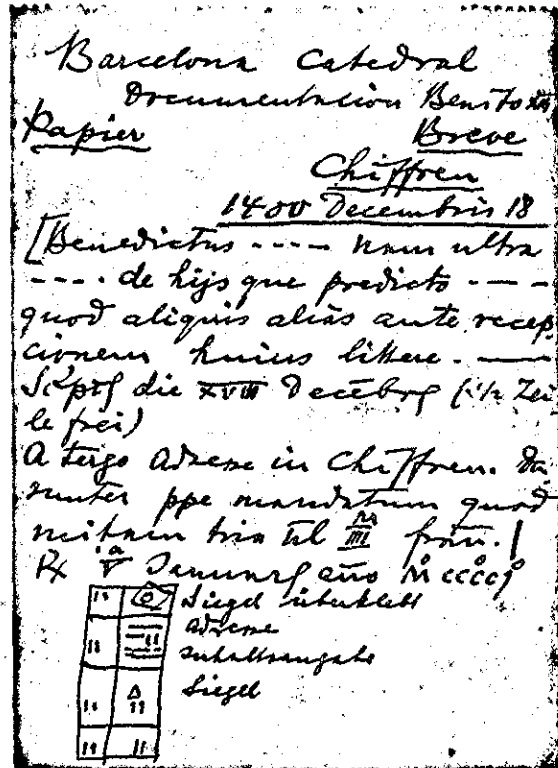 Barcelona Catedral
Documentacion Benito XIII
Papier Breve
Chiffren
1400 Decembris 18
[Benedictus ---- nam ultra
---- de hijs que predicto ----
quod aliquis alias ante recep
cionem huius littere. ——
die XVIII (1/2 Zei
le frei)
A tergo Adresse in Chiffren. Da
runter ppe mandatum quod
tria vel III
Rx V año M cccc
Siegel überklebt
Adresse
Inhaltsangabe
Siegel